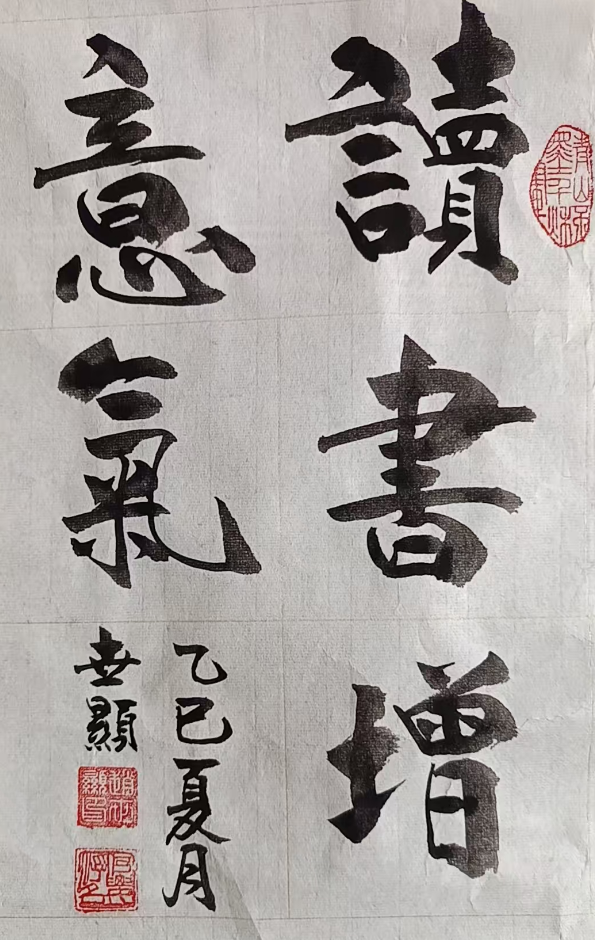 讀書增
意氣
乙巳夏月
世顯